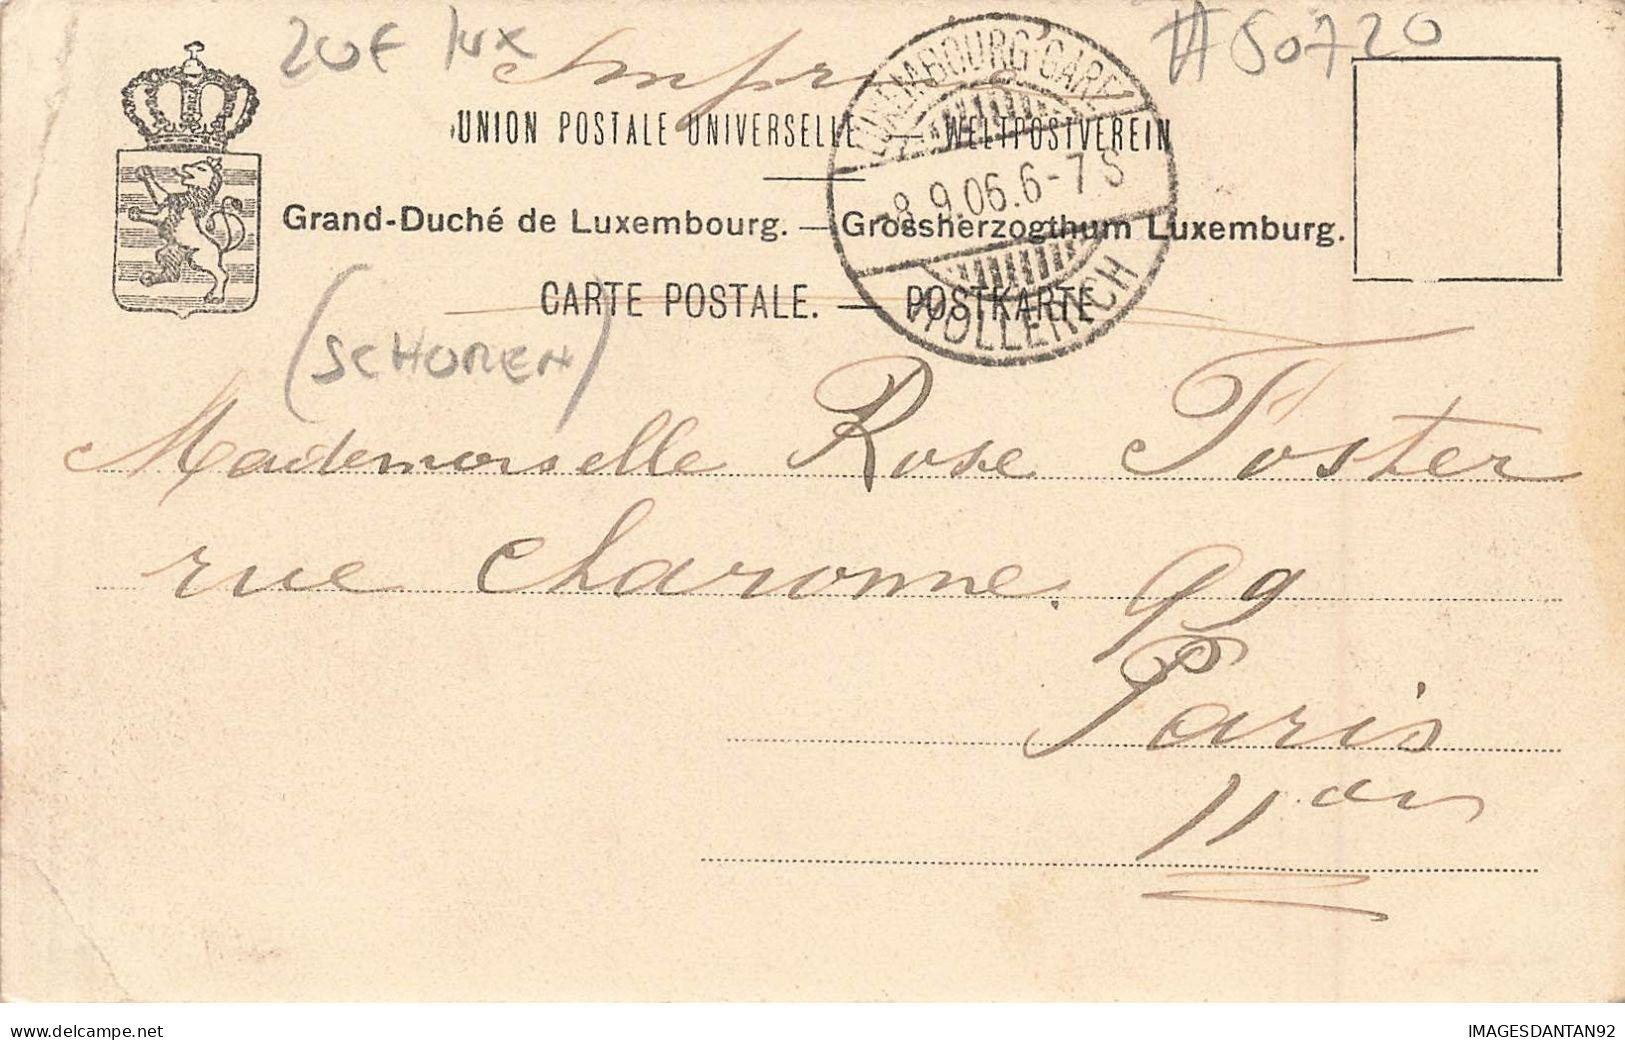 20F lux
#50720
Imprimé
LUXEMBOURG GARE
UNION POSTALE UNIVERSELLE — WELTPOSTVEREIN
8.9.06.6-7S
Grand-Duché de Luxembourg. — Grossherzogthum Luxemburg.
CARTE POSTALE. — POSTKARTE
HOLLERICH
(SCHOREN)
Mademoiselle Rose Foster
rue Charonne. 99
Paris
www.delcampe.net
IMAGESDANTAN92